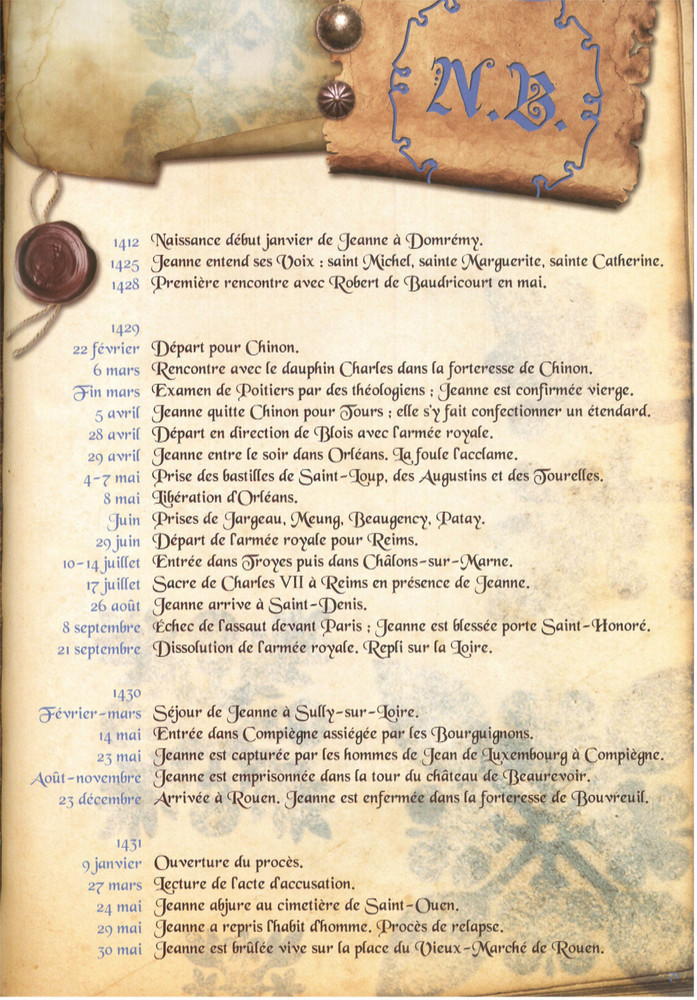 N.B.
1412 Naissance début janvier de Jeanne à Domrémy.
1425 Jeanne entend ses Voix : saint Michel, sainte Marguerite, sainte Catherine.
1428 Première rencontre avec Robert de Baudricourt en mai.
1429
22 février Départ pour Chinon.
6 mars Rencontre avec le dauphin Charles dans la forteresse de Chinon.
Fin mars Examen de Poitiers par des théologiens ; Jeanne est confirmée vierge.
5 avril Jeanne quitte Chinon pour Tours ; elle s'y fait confectionner un étendard.
28 avril Départ en direction de Blois avec l'armée royale.
29 avril Jeanne entre le soir dans Orléans. La foule l'acclame.
4-7 mai Prise des bastilles de Saint-Loup, des Augustins et des Tourelles.
8 mai Libération d'Orléans.
Juin Prises de Jargeau, Meung, Beaugency, Patay.
29 juin Départ de l'armée royale pour Reims.
10-14 juillet Entrée dans Troyes puis dans Châlons-sur-Marne.
17 juillet Sacre de Charles VII à Reims en présence de Jeanne.
26 août Jeanne arrive à Saint-Denis.
8 septembre Échec de l'assaut devant Paris ; Jeanne est blessée porte Saint-Honoré.
21 septembre Dissolution de l'armée royale. Repli sur la Loire.
1430
Février-mars Séjour de Jeanne à Sully-sur-Loire.
14 mai Entrée dans Compiègne assiégée par les Bourguignons.
23 mai Jeanne est capturée par les hommes de Jean de Luxembourg à Compiègne.
Août-novembre Jeanne est emprisonnée dans la tour du château de Beaurevoir.
23 décembre Arrivée à Rouen. Jeanne est enfermée dans la forteresse de Bouvreuil.
1431
9 janvier Ouverture du procès.
27 mars Lecture de l'acte d'accusation.
24 mai Jeanne abjure au cimetière de Saint-Ouen.
29 mai Jeanne a repris l'habit d'homme. Procès de relapse.
30 mai Jeanne est brûlée vive sur la place du Vieux-Marché de Rouen.